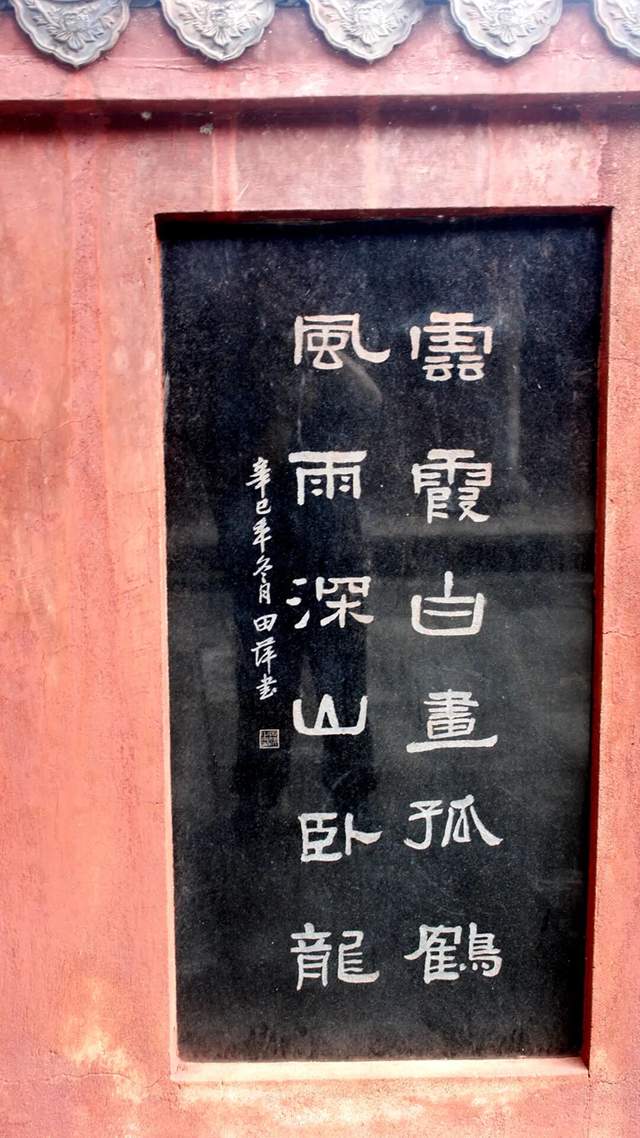 雲霞白畫孤鶴
風雨深山卧龍
辛巳年冬月田萍書